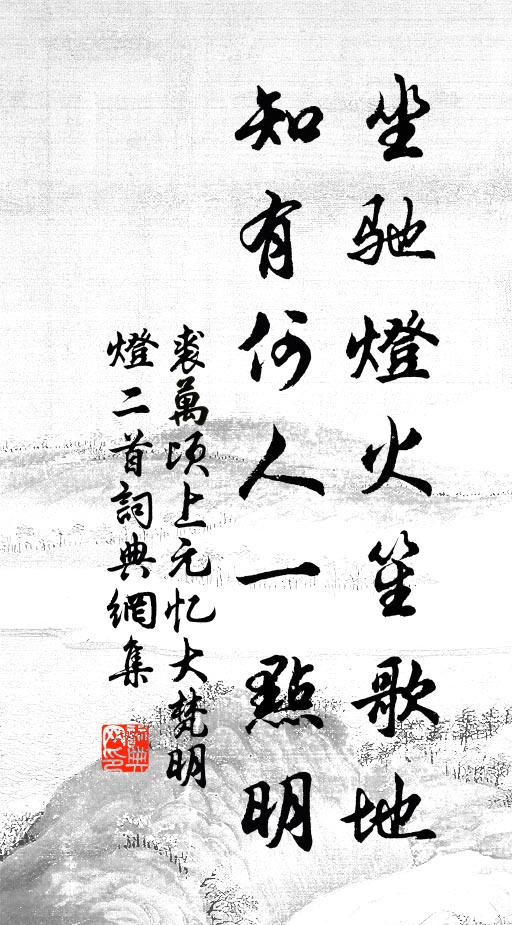 坐驰燈火笙歌地
知有何人一點明
裘萬頃上元忆大梵明
燈二首詞典網集